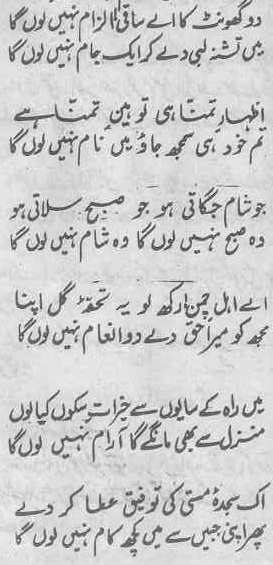 دو گھونٹ کا اے ساقی الزام نہیں لوں گا
میں تشنہ لبی دے کر ایک جام نہیں لوں گا
اظہارِ تمنا ہی توہینِ تمنا ہے
تم خود ہی سمجھ جاؤ میں نام نہیں لوں گا
جو شام جگاتی ہو جو صبح سلاتی ہو
وہ صبح نہیں لوں گا وہ شام نہیں لوں گا
اے اہلِ چمن رکھ لو یہ تحفۂ گل اپنا
مجھ کو میرا حق دے دو انعام نہیں لوں گا
میں راہ کے سایوں سے خیراتِ سکوں کیا لوں
منزل سے بھی مانگے کا آرام نہیں لوں گا
اک سجدۂ مستی کی توفیق عطا کر دے
پھر اپنی جبیں سے میں کچھ کام نہیں لوں گا